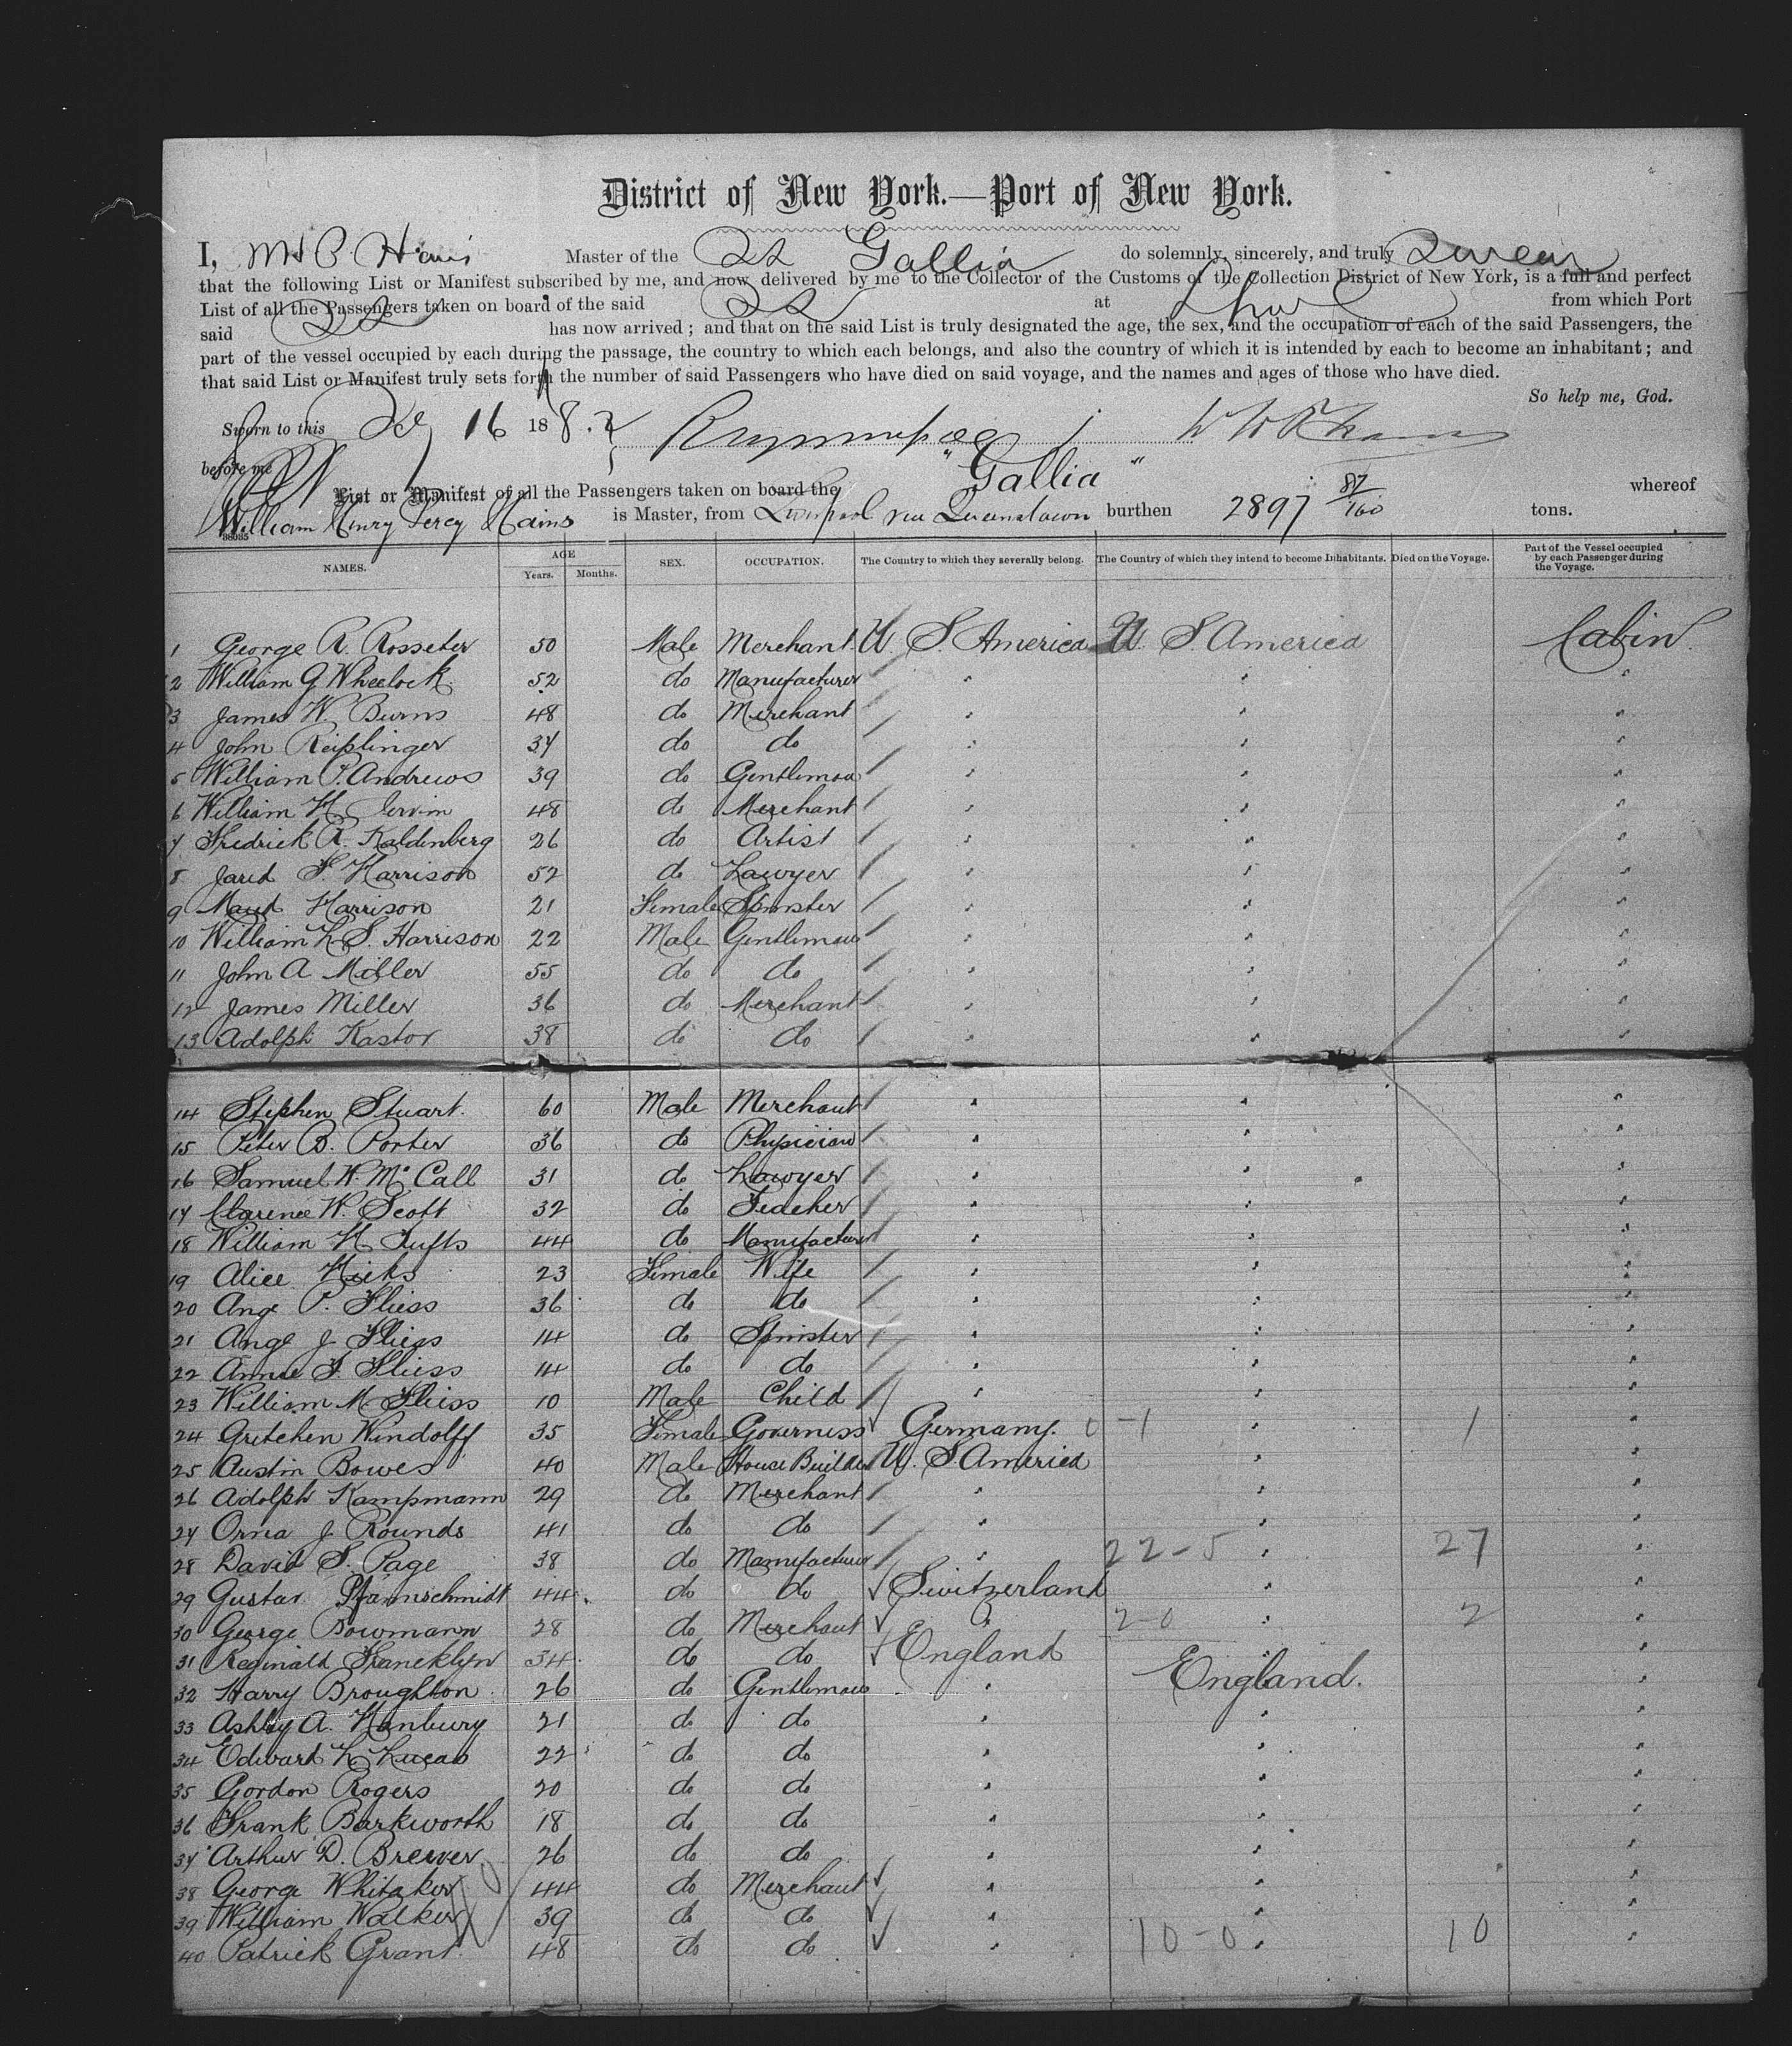 District of New York.—Port of New York.
I, Master of the SS Gallia do solemnly, sincerely, and truly swear
that the following List or Manifest subscribed by me, and now delivered by me to the Collector of the Customs of the Collection District of New York, is a full and perfect
List of all the Passengers taken on board of the said SS at from which Port
said SS has now arrived; and that on the said List is truly designated the age, the sex, and the occupation of each of the said Passengers, the
part of the vessel occupied by each during the passage, the country to which each belongs, and also the country of which it is intended by each to become an inhabitant; and
that said List or Manifest truly sets forth the number of said Passengers who have died on said voyage, and the names and ages of those who have died.
So help me, God.
Sworn to this 16 188.2
before me
List or Manifest of all the Passengers taken on board the "Gallia" whereof
William Henry Percy Hains is Master, from Liverpool via Queenstown burthen 2897 87/100 tons.
38085
NAMES. AGE Years. Months. SEX. OCCUPATION. The Country to which they severally belong. The Country of which they intend to become Inhabitants. Died on the Voyage. Part of the Vessel occupied by each Passenger during the Voyage.
1 George R. Rosseter 50 Male Merchant U. S. America U. S. America Cabin
2 William G Wheelock 52 do Manufacturer " " "
3 James W. Burns 48 do Merchant " " "
4 John Reiplinger 34 do do " " "
5 William P. Andrews 39 do Gentleman " " "
6 William H Irvin 48 do Merchant " " "
7 Fredrick R. Kaldenberg 26 do Artist " " "
8 Jared F. Harrison 52 do Lawyer " " "
9 Maud Harrison 21 Female Spinster " " "
10 William L. S. Harrison 22 Male Gentleman " " "
11 John A Miller 55 do do " " "
12 James Miller 36 do Merchant " " "
13 Adolph Kastor 38 do do " " "
14 Stephen Stuart 60 Male Merchant " " "
15 Peter B. Porter 36 do Physician " " "
16 Samuel W. McCall 31 do Lawyer " " "
17 Clarence W. Scott 32 do Teacher " " "
18 William H Tufts 44 do Manufacturer " " "
19 Alice Hicks 23 Female Wife " " "
20 Ange P. Fliess 36 do do " " "
21 Ange J Fliess 14 do Spinster " " "
22 Annie F. Fliess 14 do do " " "
23 William M Fliess 10 Male Child " " "
24 Gretchen Windolff 35 Female Governess Germany. 0-1 " 1 "
25 Austin Bowes 40 Male House Builder U. S America " "
26 Adolph Kampmann 29 do Merchant " " "
27 Orna J Rounds 41 do do " " "
28 David S. Page 38 do Manufacturer " 22-5 " 27 "
29 Gustav Pfannschmidt 44 do do Switzerland " "
30 George Bowmann 28 do Merchant " 2-0 " 2 "
31 Reginald Francklyn 34 do do England " "
32 Harry Broughton 26 do Gentleman " England. "
33 Ashby A. Hanbury 21 do do " " "
34 Edward L Lucas 22 do do " " "
35 Gordon Rogers 20 do do " " "
36 Frank Barkworth 18 do do " " "
37 Arthur D. Brewer 26 do do " " "
38 George Whitaker 44 do Merchant " " "
39 William Walker 39 do do " " "
40 Patrick Grant 48 do do " 10-0 " 10 "